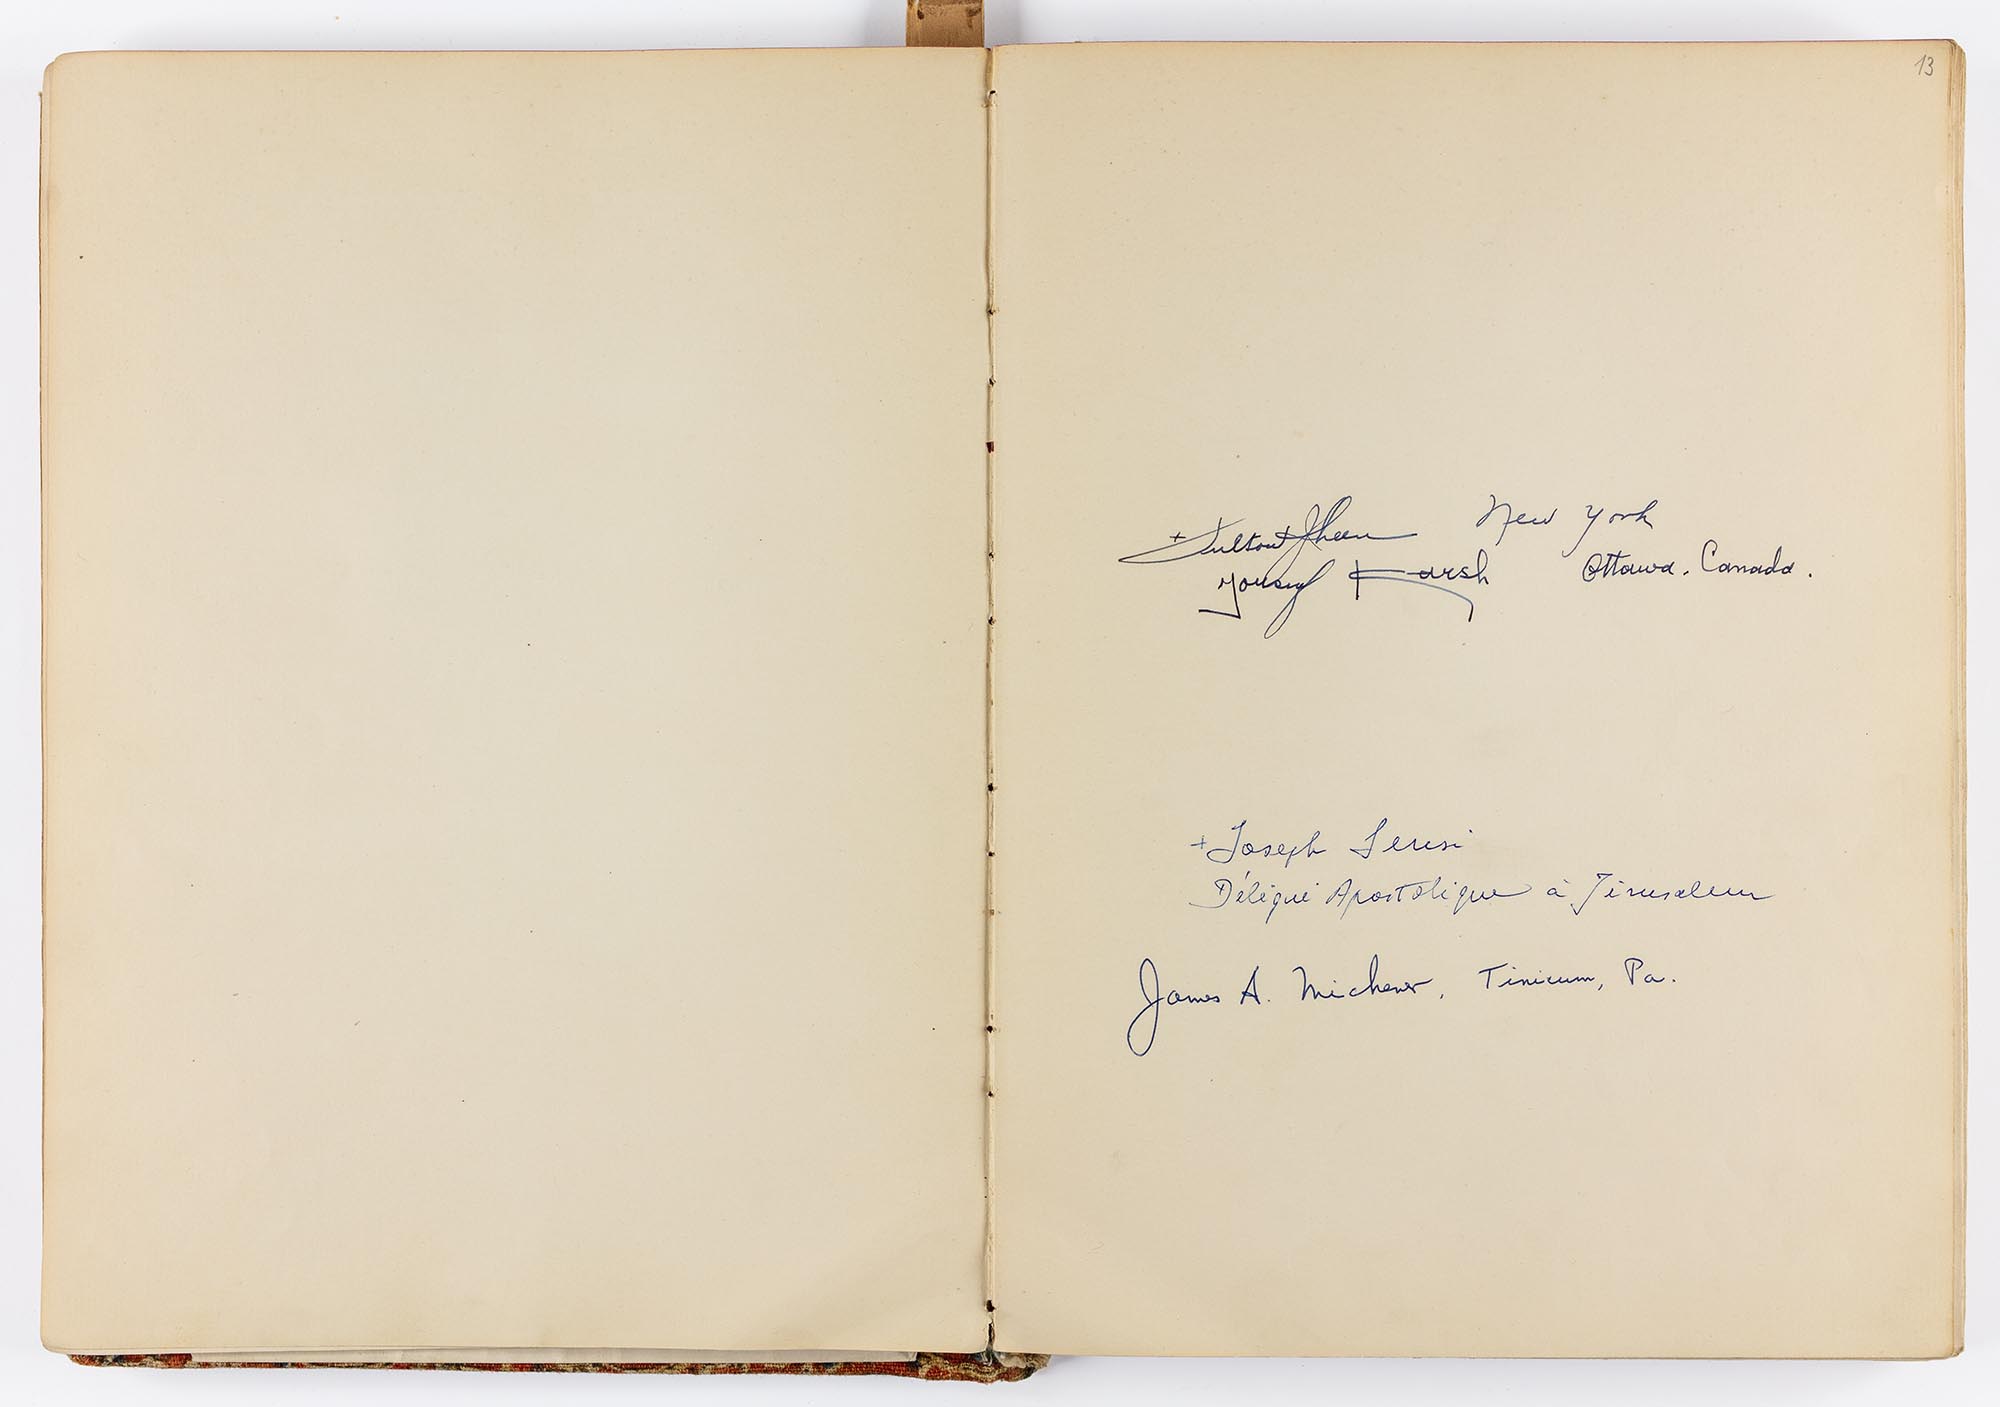 13
+ Fulton J Sheen New York
Yousuf Karsh Ottawa. Canada.
+ Joseph Sensi
Délégué Apostolique à Jérusalem
James A. Michener, Tinicum, Pa.